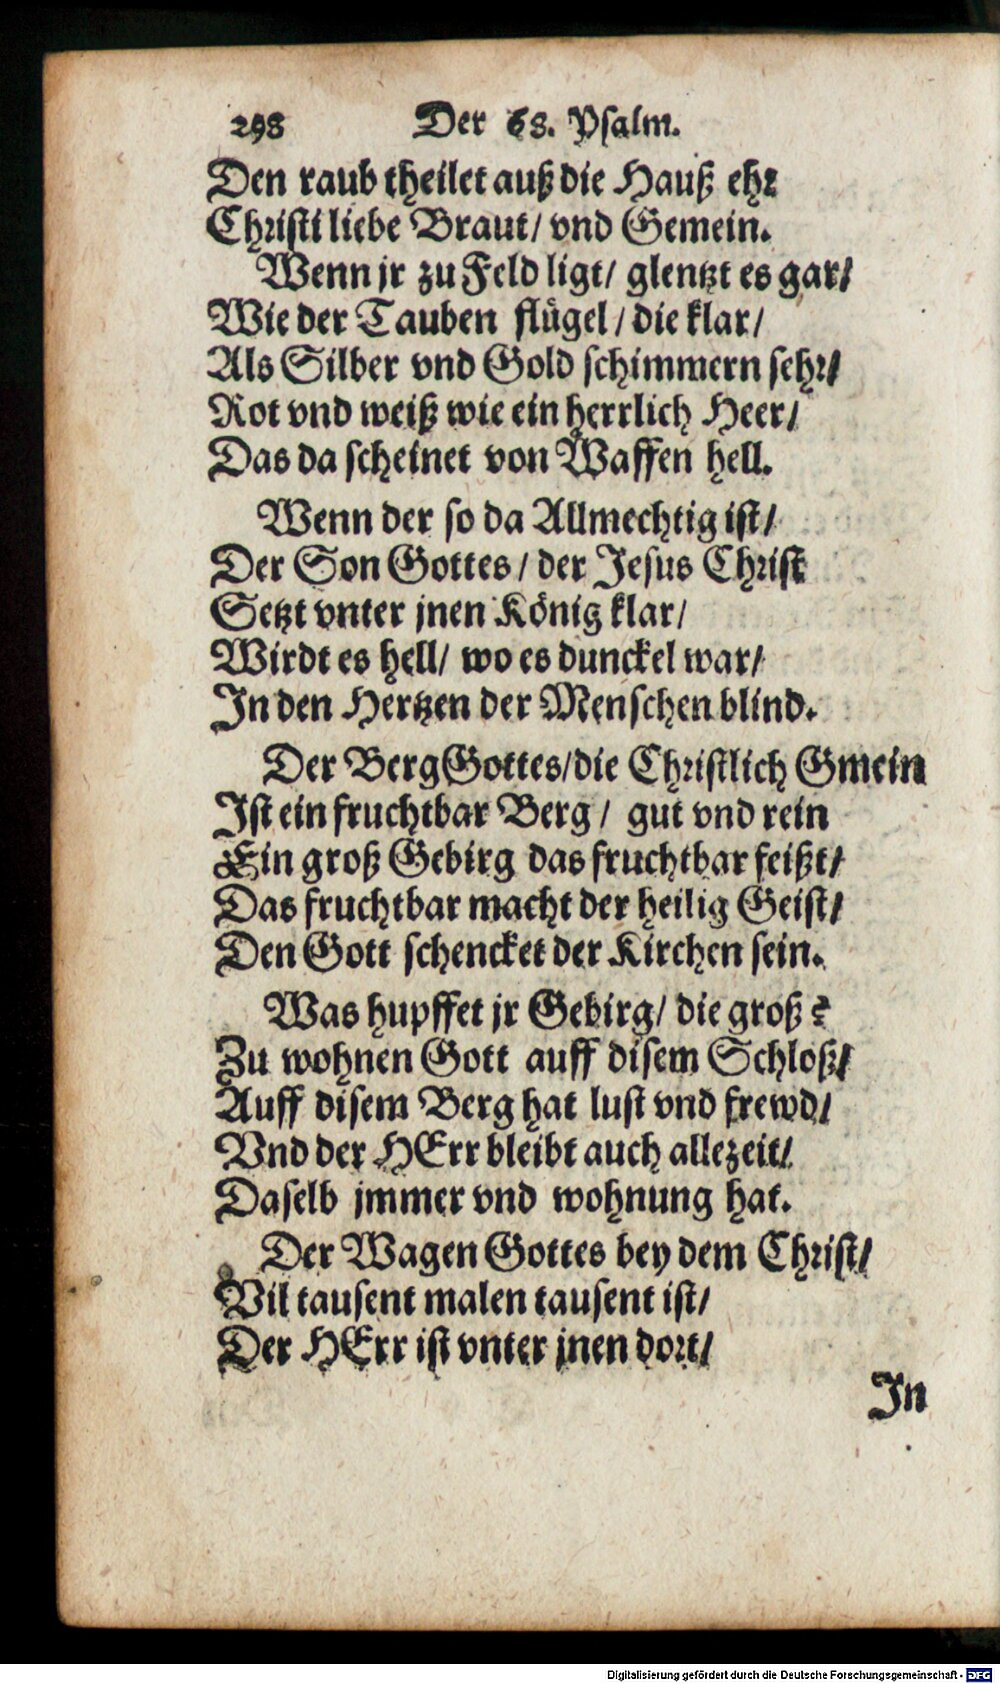 298 Der 68. Psalm.
Den raub theilet auß die Hauß ehr
Christi liebe Braut/ vnd Gemein.
Wenn jr zu Feld ligt/ glentzt es gar/
Wie der Tauben flügel/ die klar/
Als Silber vnd Gold schimmern sehr/
Rot vnd weiß wie ein herrlich Heer/
Das da scheinet von Waffen hell.
Wenn der so da Allmechtig ist/
Der Son Gottes/ der Jesus Christ
Setzt vnter jnen König klar/
Wirdt es hell/ wo es dunckel war/
In den Hertzen der Menschen blind.
Der Berg Gottes/ die Christlich Gmein
Ist ein fruchtbar Berg/ gut vnd rein
Ein groß Gebirg das fruchtbar feißt/
Das fruchtbar macht der heilig Geist/
Den Gott schencket der Kirchen sein.
Was hupffet jr Gebirg/ die groß?
Zu wohnen Gott auff disem Schloß/
Auff disem Berg hat lust vnd frewd/
Vnd der HErr bleibt auch allezeit/
Daselb jmmer vnd wohnung hat.
Der Wagen Gottes bey dem Christ/
Vil tausent malen tausent ist/
Der HErr ist vnter jnen dort/
In
Digitalisierung gefördert durch die Deutsche Forschungsgemeinschaft - DFG